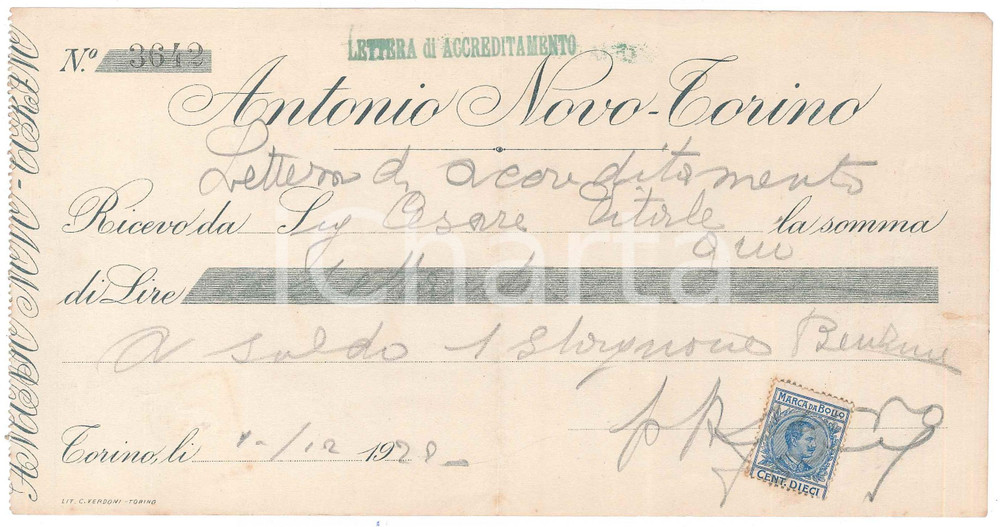 LETTERA di ACCREDITAMENTO
N.o 3642
Antonio Novo-Torino
Lettera di accreditamento
Ricevo da Sig Cesare Vitale la somma
qui
di Lire
a saldo 1
Torino, li /12 1928
MARCA DA BOLLO
CENT. DIECI
LIT. C. VERDONI-TORINO
iCharta